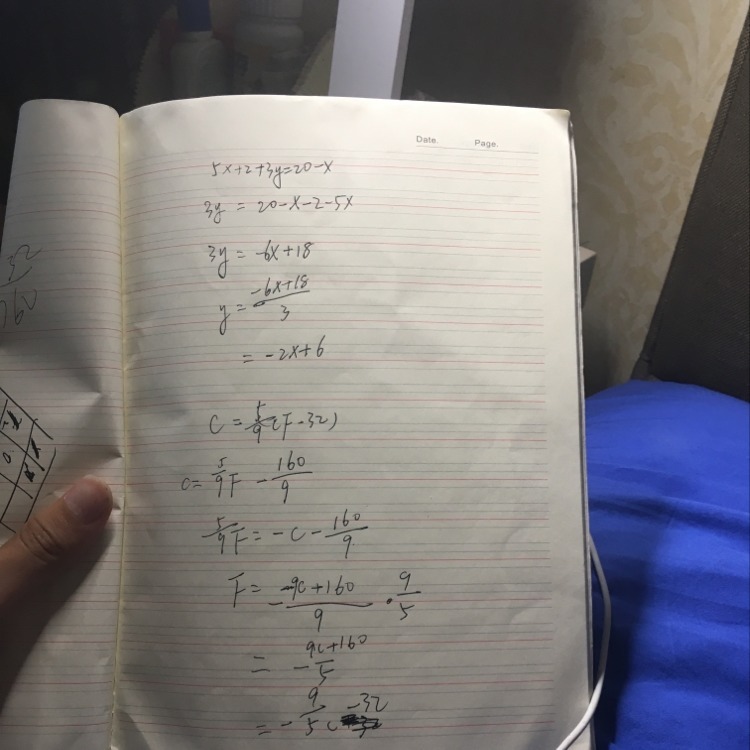 Date. Page.
5x+2+3y=20-x
3y = 20-x-2-5x
3y = -6x+18
y = -6x+18/3
= -2x+6
C = 5/9(F-32)
C = 5/9F - 160/9
5/9F = -C - 160/9
F = - 9C+160/9 · 9/5
= - 9C+160/5
= - 9/5 C -32
32
160